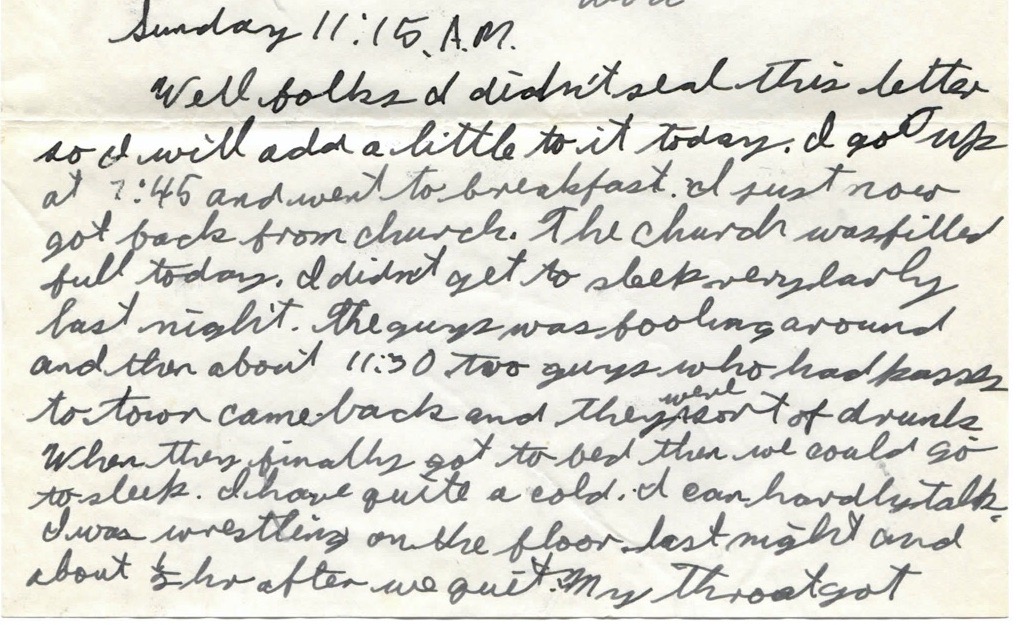 Sunday 11:15 A.M.
Well folks I didn't seal this letter
so I will add a little to it today. I got up
at 7:45 and went to breakfast. I just now
got back from church. The church was filled
full today. I didn't get to sleep very early
last night. The guys was fooling around
and then about 11:30 two guys who had passes
to town came back and they were sort of drunk
When they finally got to bed then we could go
to sleep. I have quite a cold. I can hardly talk.
I was wrestling on the floor last night and
about ½ hr after we quit. My throat got